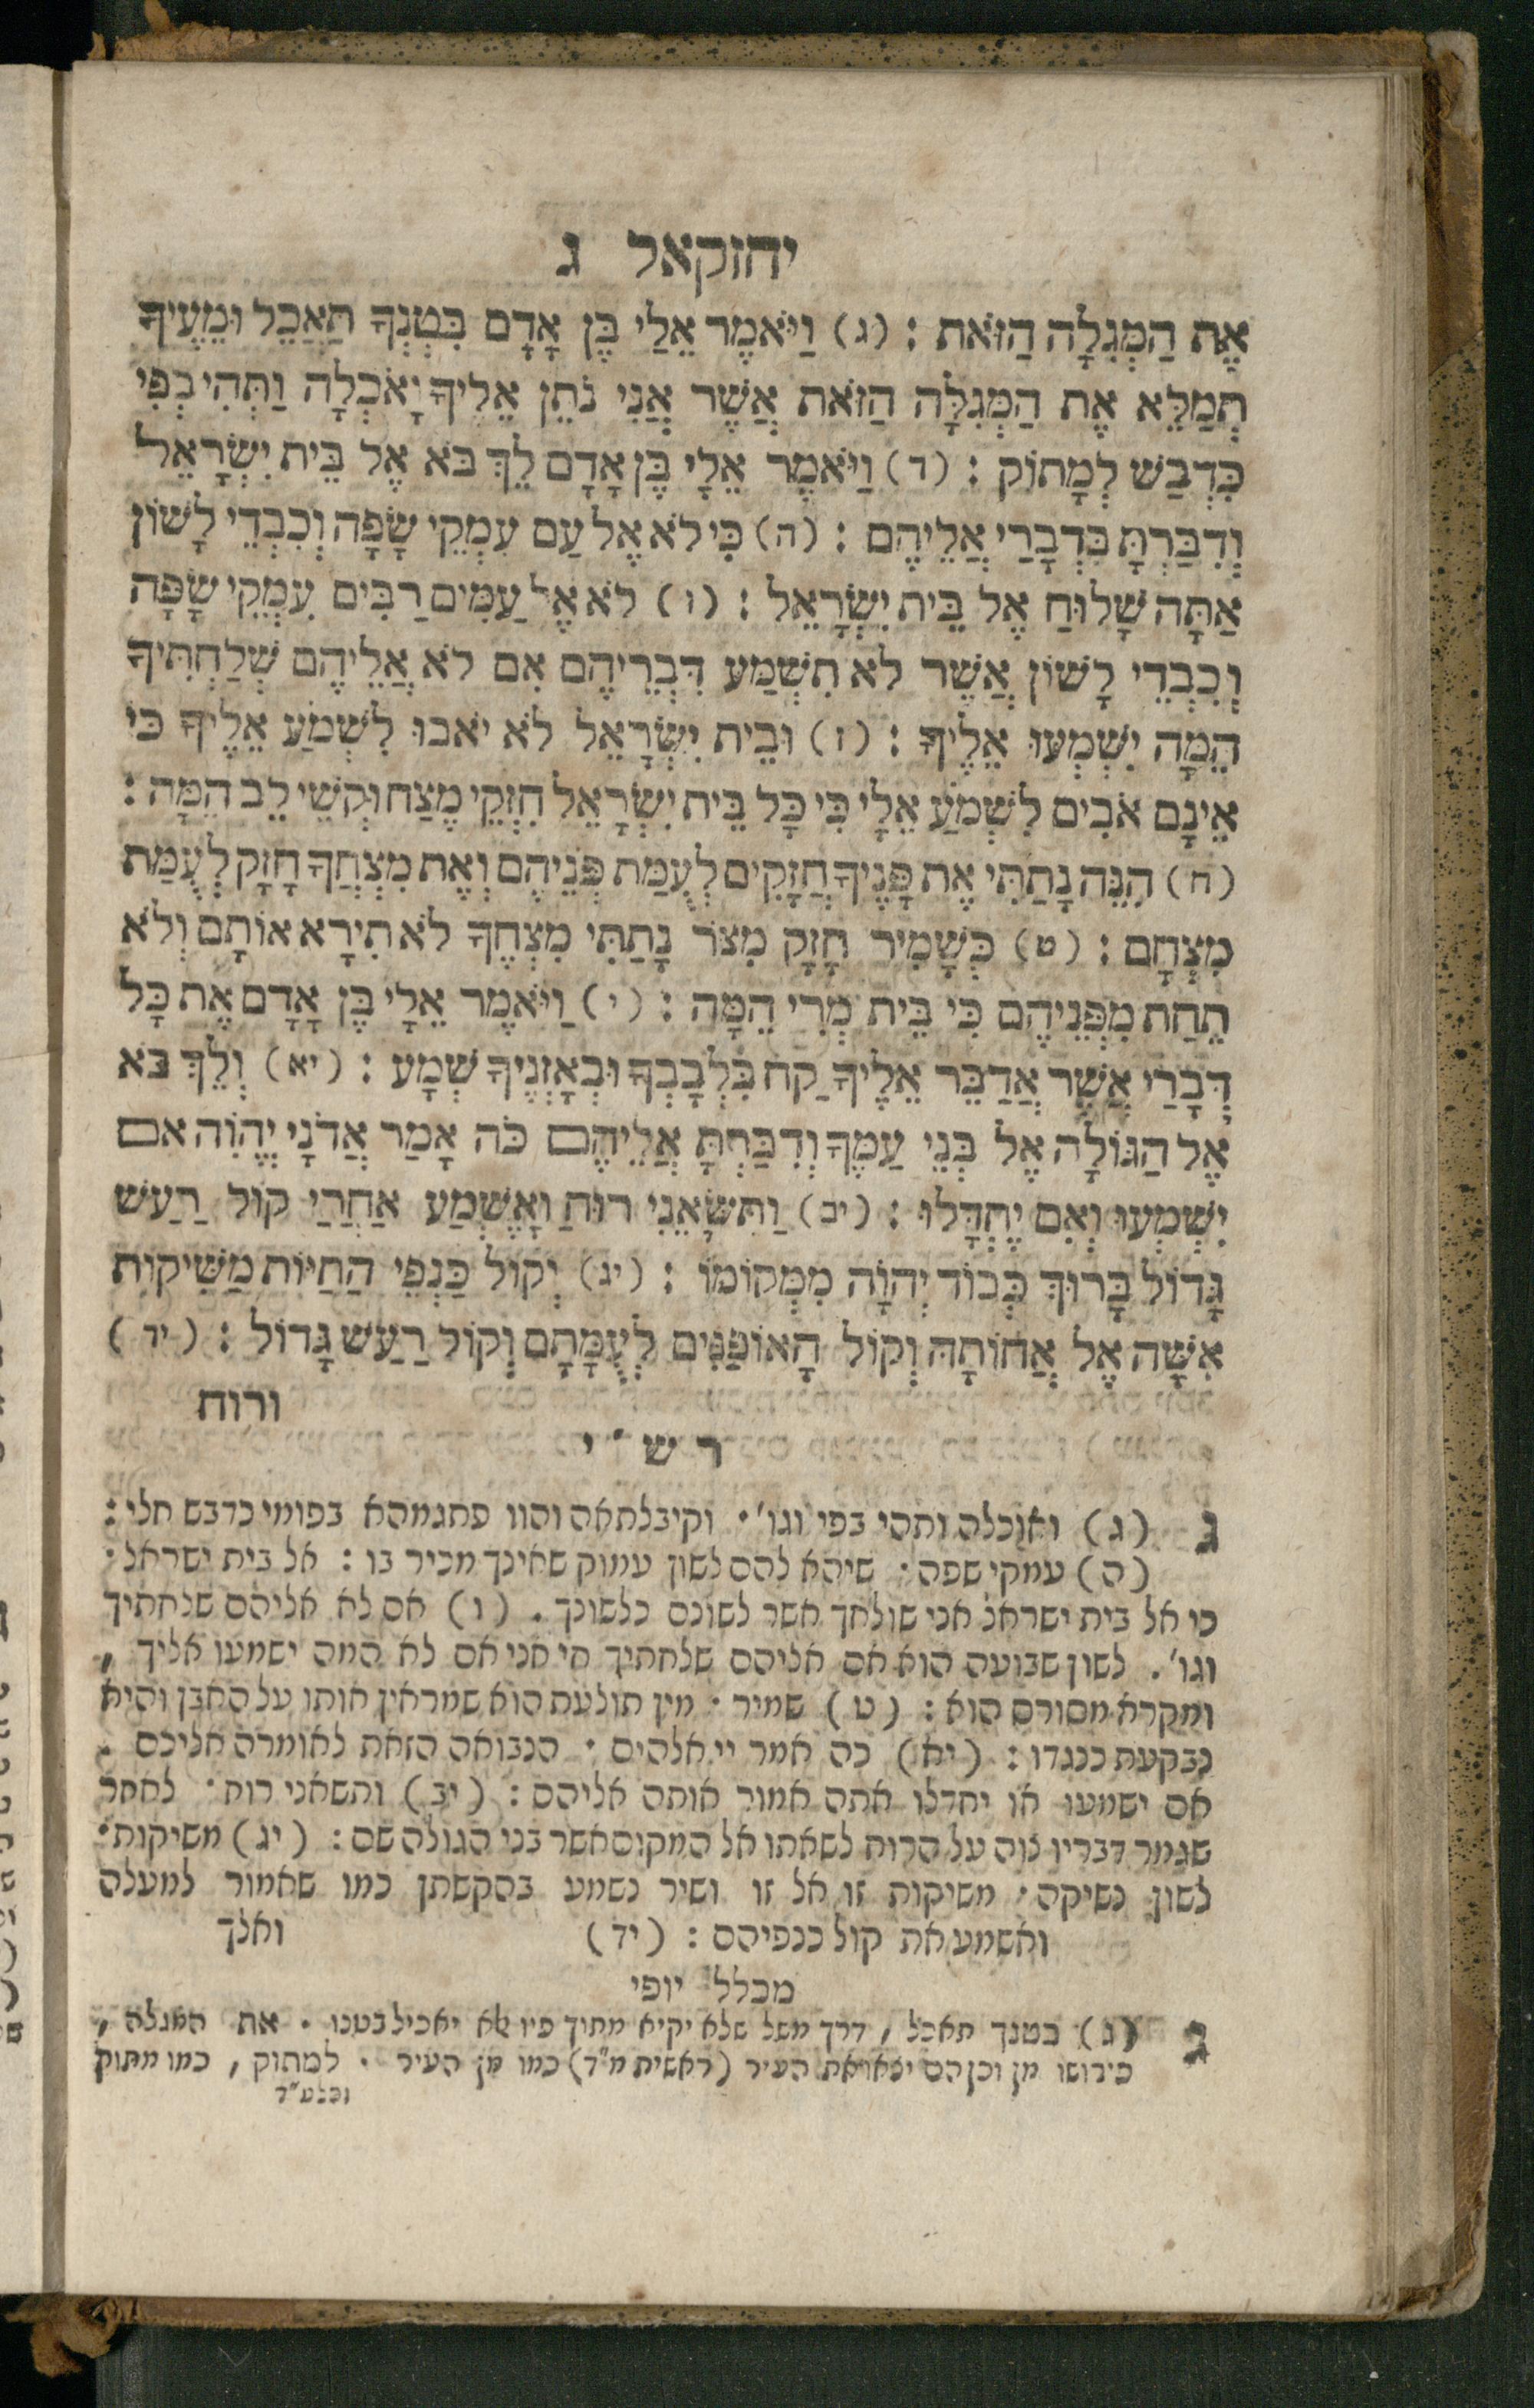 יחזקאל ג
אֶת הַמְּגִלָּה הַזֹּאת : (ג) וַיֹּאמֶר אֵלַי בֶּן אָדָם בִּטְנְךָ תַאֲכֵל וּמֵעֶיךָ
תְמַלֵּא אֶת הַמְּגִלָּה הַזֹּאת אֲשֶׁר אֲנִי נֹתֵן אֵלֶיךָ וָאֹכְלָה וַתְּהִי בְּפִי
כִּדְבַשׁ לְמָתוֹק : (ד) וַיֹּאמֶר אֵלָי בֶּן אָדָם לֶךְ בֹּא אֶל בֵּית יִשְׂרָאֵל
וְדִבַּרְתָּ בִדְבָרַי אֲלֵיהֶם : (ה) כִּי לֹא אֶל עַם עִמְקֵי שָׂפָה וְכִבְדֵי לָשׁוֹן
אַתָּה שָׁלוּחַ אֶל בֵּית יִשְׂרָאֵל : (ו) לֹא אֶל עַמִּים רַבִּים עִמְקֵי שָׂפָה
וְכִבְדֵי לָשׁוֹן אֲשֶׁר לֹא תִשְׁמַע דִּבְרֵיהֶם אִם לֹא אֲלֵיהֶם שְׁלַחְתִּיךָ
הֵמָּה יִשְׁמְעוּ אֵלֶיךָ : (ז) וּבֵית יִשְׂרָאֵל לֹא יֹאבוּ לִשְׁמֹעַ אֵלֶיךָ כִּי
אֵינָם אֹבִים לִשְׁמֹעַ אֵלָי כִּי כָּל בֵּית יִשְׂרָאֵל חִזְקֵי מֶצַח וּקְשֵׁי לֵב הֵמָּה :
(ח) הִנֵּה נָתַתִּי אֶת פָּנֶיךָ חֲזָקִים לְעֻמַּת פְּנֵיהֶם וְאֶת מִצְחֲךָ חָזָק לְעֻמַּת
מִצְחָם : (ט) כְּשָׁמִיר חָזָק מִצֹּר נָתַתִּי מִצְחֶךָ לֹא תִירָא אוֹתָם וְלֹא
תֵחַת מִפְּנֵיהֶם כִּי בֵּית מְרִי הֵמָּה : (י) וַיֹּאמֶר אֵלָי בֶּן אָדָם אֶת כָּל
דְּבָרַי אֲשֶׁר אֲדַבֵּר אֵלֶיךָ קַח בִּלְבָבְךָ וּבְאָזְנֶיךָ שְׁמָע : (יא) וְלֵךְ בֹּא
אֶל הַגּוֹלָה אֶל בְּנֵי עַמֶּךָ וְדִבַּרְתָּ אֲלֵיהֶם כֹּה אָמַר אֲדֹנָי יֱהֹוִה אִם
יִשְׁמְעוּ וְאִם יֶחְדָּלוּ : (יב) וַתִּשָּׂאֵנִי רוּחַ וָאֶשְׁמַע אַחֲרַי קוֹל רַעַשׁ
גָּדוֹל בָּרוּךְ כְּבוֹד יְהוָֹה מִמְּקוֹמוֹ : (יג) וְקוֹל כַּנְפֵי הַחַיּוֹת מַשִּׁיקוֹת
אִשָּׁה אֶל אֲחוֹתָהּ וְקוֹל הָאוֹפַנִּים לְעֻמָּתָם וְקוֹל רַעַשׁ גָּדוֹל : (יד)
ורוח
רש״י
ג (ג) ואוכלה ותהי בפי וגו׳ . וקיבלתאה והוו פתגמהא בפומי כדבש חלי :
(ה) עמקי שפה . שיהא להם לשון עמוק שאינך מכיר בו : אל בית ישראל .
כי אל בית ישראל אני שולחך אשר לשונם כלשונך . (ו) אם לא אליהם שלחתיך
וגו׳ . לשון שבועה הוא אם אליהם שלחתיך חי אני אם לא המה ישמעו אליך ,
ומקרא מסורס הוא : (ט) שמיר . מין תולעת הוא שמראין אותו על האבן והיא
נבקעת כנגדו : (יא) כה אמר יי אלהים . הנבואה הזאת לאומרה אליכם .
אם ישמעו או יחדלו אתה אמור אותה אליהם : (יב) ותשאני רוח . לאחר
שגמר דבריו צוה על הרוח לשאתו אל המקום אשר בני הגולה שם : (יג) משיקות .
לשון נשיקה . משיקות זו אל זו ושיר נשמע בהקשתן כמו שאמור למעלה
ואשמע את קול כנפיהם : (יד) ואלך
מכלל יופי
ג (ג) בטנך תאכל , דרך משל שלא יקיא מתוך פיו אלא יאכיל בטנו . את המגלה ,
פירושו מן וכן הם יצאו את העיר (ראשית מ״ד) כמו מן העיר . למתוק , כמו מתוק